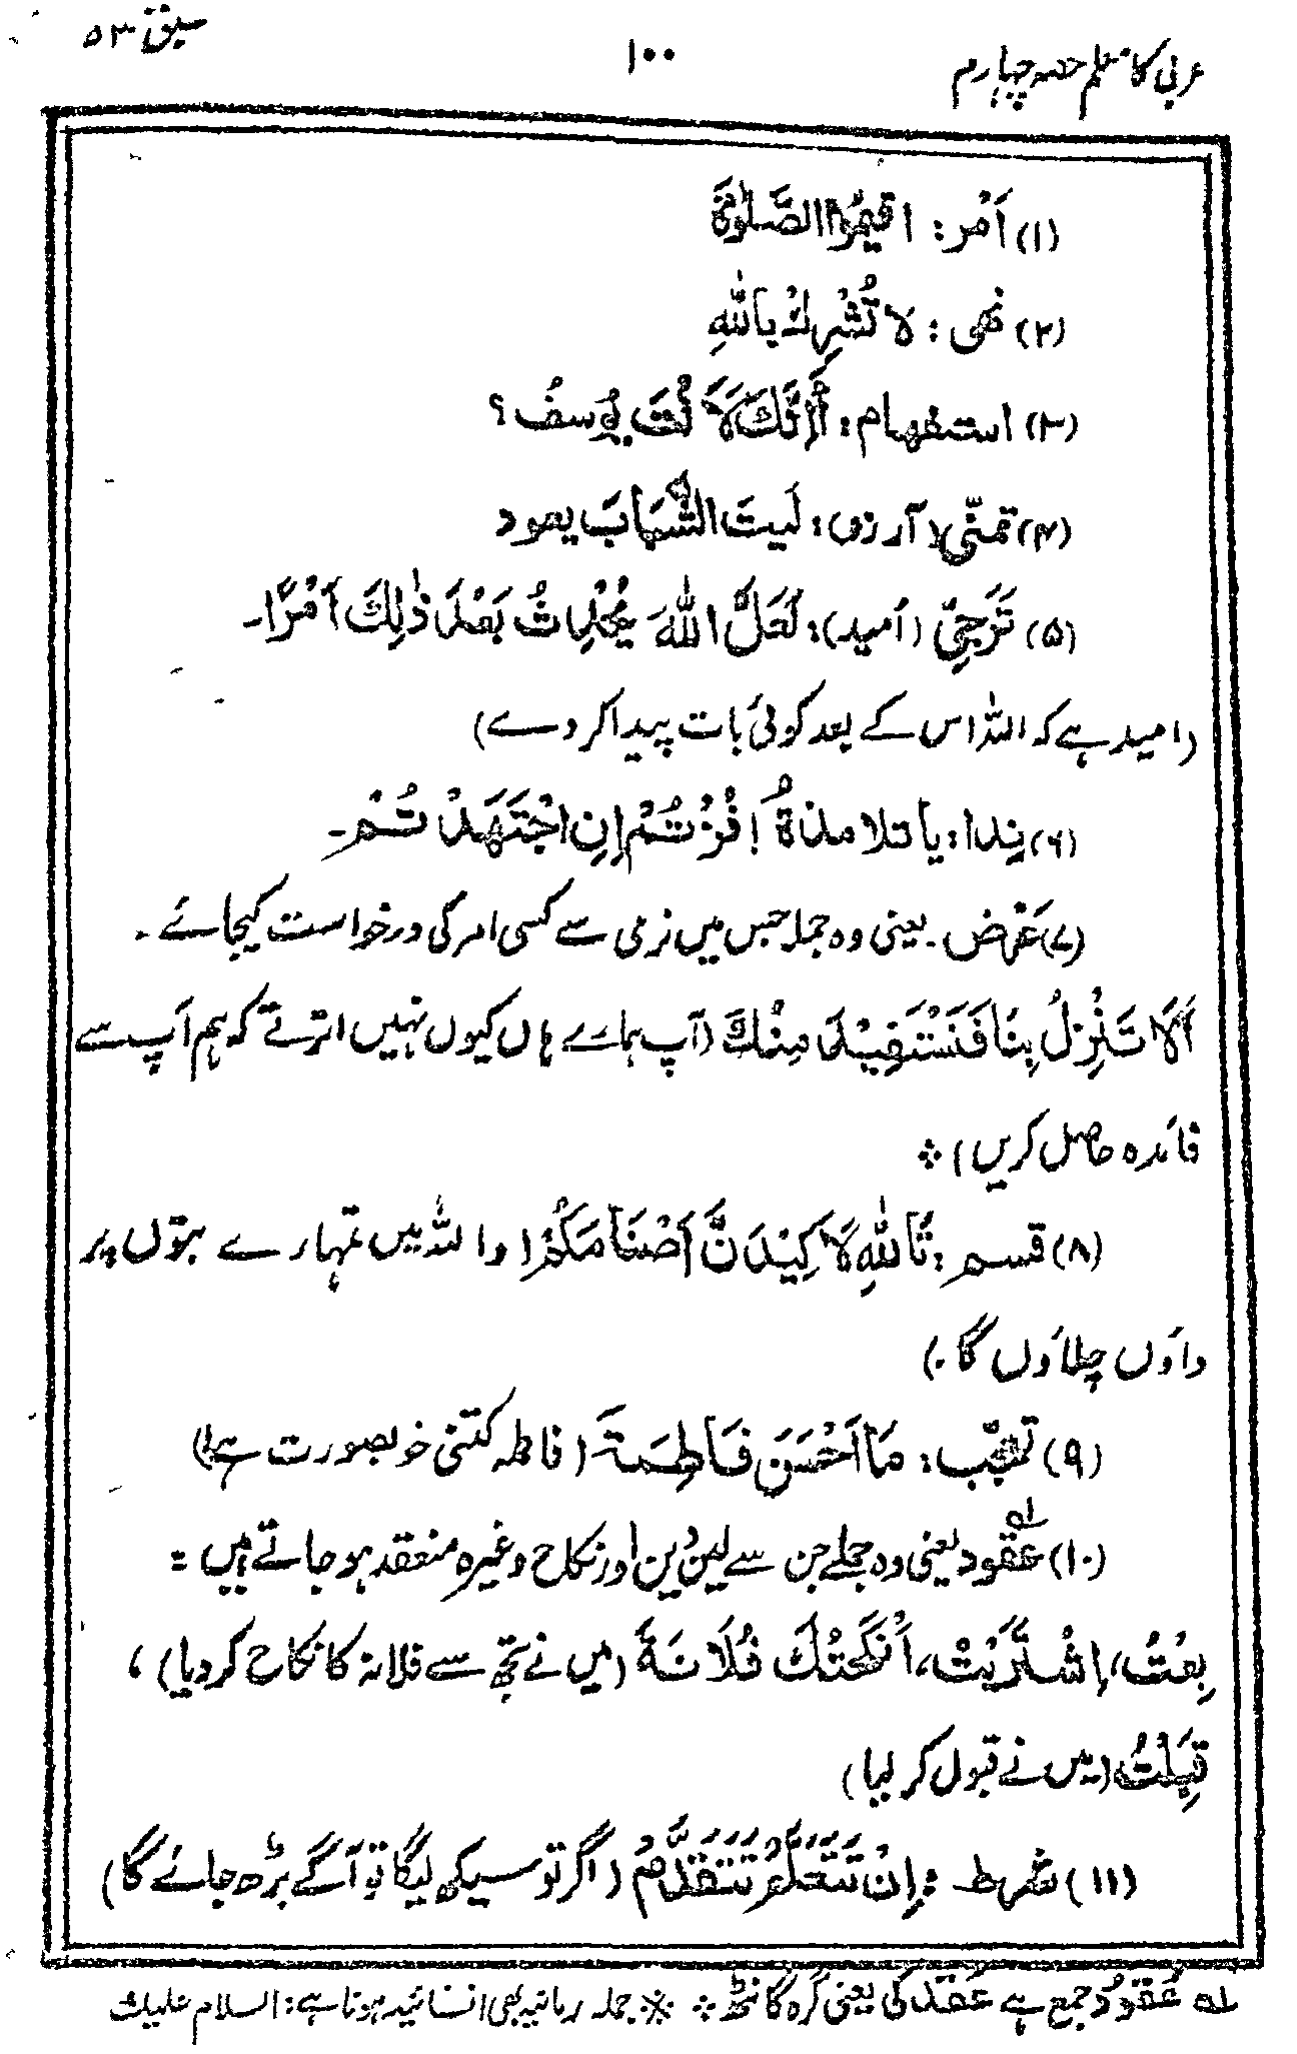 عربی کا معلم حصہ چہارم
۱۰۰
سبق ۵۳
(۱) اَمْر: اقیمُوا الصَّلوٰةَ
(۲) نھی: لا تُشْرِكْ بِاللّٰهِ
(۳) استفهام: أَإِنَّكَ لَاَنْتَ یُوسفُ؟
(۴) تمنّی (آرزو): لَیتَ الشَّبَابَ یعود
(۵) تَرَجِیّ (اُمید): لَعَلَّ اللّٰهَ یُحْدِثُ بَعْدَ ذٰلِكَ اَمْرًا۔
(امید ہے کہ اللہ اس کے بعد کوئی بات پیدا کر دے)
(۶) نِدا: یا تلامذةُ! فُزْتُمْ اِنِ اجْتَهَدْتُمْ۔
(۷) عَرْض۔ یعنی وہ جملہ جس میں نرمی سے کسی امر کی درخواست کیجائے۔
اَلَا تَنْزِلُ بِنَا فَنَسْتَفِیْدَ مِنْكَ (آپ ہمارے ہاں کیوں نہیں اترتے کہ ہم آپ سے
فائدہ حاصل کریں)
(۸) قسم: تَاللّٰهِ لَاَكِیْدَنَّ اَصْنَامَكُمْ (واللہ میں تمہارے بتوں پر
داؤں چلاؤں گا۔)
(۹) تعجّب: مَا اَحْسَنَ فَاطِمَةَ (فاطمہ کتنی خوبصورت ہے!)
(۱۰) عقود ؎۱ یعنی وہ جملے جن سے لین دین اور نکاح وغیرہ منعقد ہو جاتے ہیں =
بِعْتُ، اِشْتَرَیْتُ، اَنْكَحْتُكَ فُلَانَةَ (میں نے تجھ سے فلانہ کا نکاح کر دیا)،
قَبِلْتُ (میں نے قبول کر لیا)
(۱۱) شرط: اِنْ تَتَعَلَّمْ تَتَقَدَّمْ (اگر تو سیکھ لیگا تو آگے بڑھ جائے گا)
؎۱ عُقُودُ جمع ہے عَقْد کی یعنی گرہ گانٹھ ※ جملہ دعائیہ بھی انشائیہ ہوتا ہے: السلام علیك